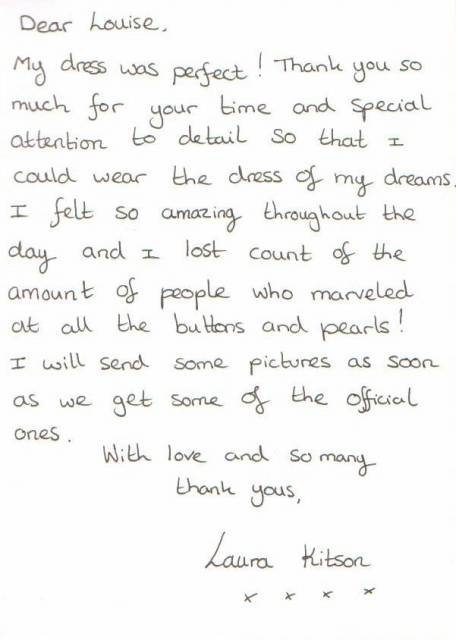 Dear Louise,
My dress was perfect! Thank you so
much for your time and special
attention to detail so that I
could wear the dress of my dreams.
I felt so amazing throughout the
day and I lost count of the
amount of people who marveled
at all the buttons and pearls!
I will send some pictures as soon
as we get some of the official
ones.
With love and so many
thank yous,
Laura Kitson
x x x x